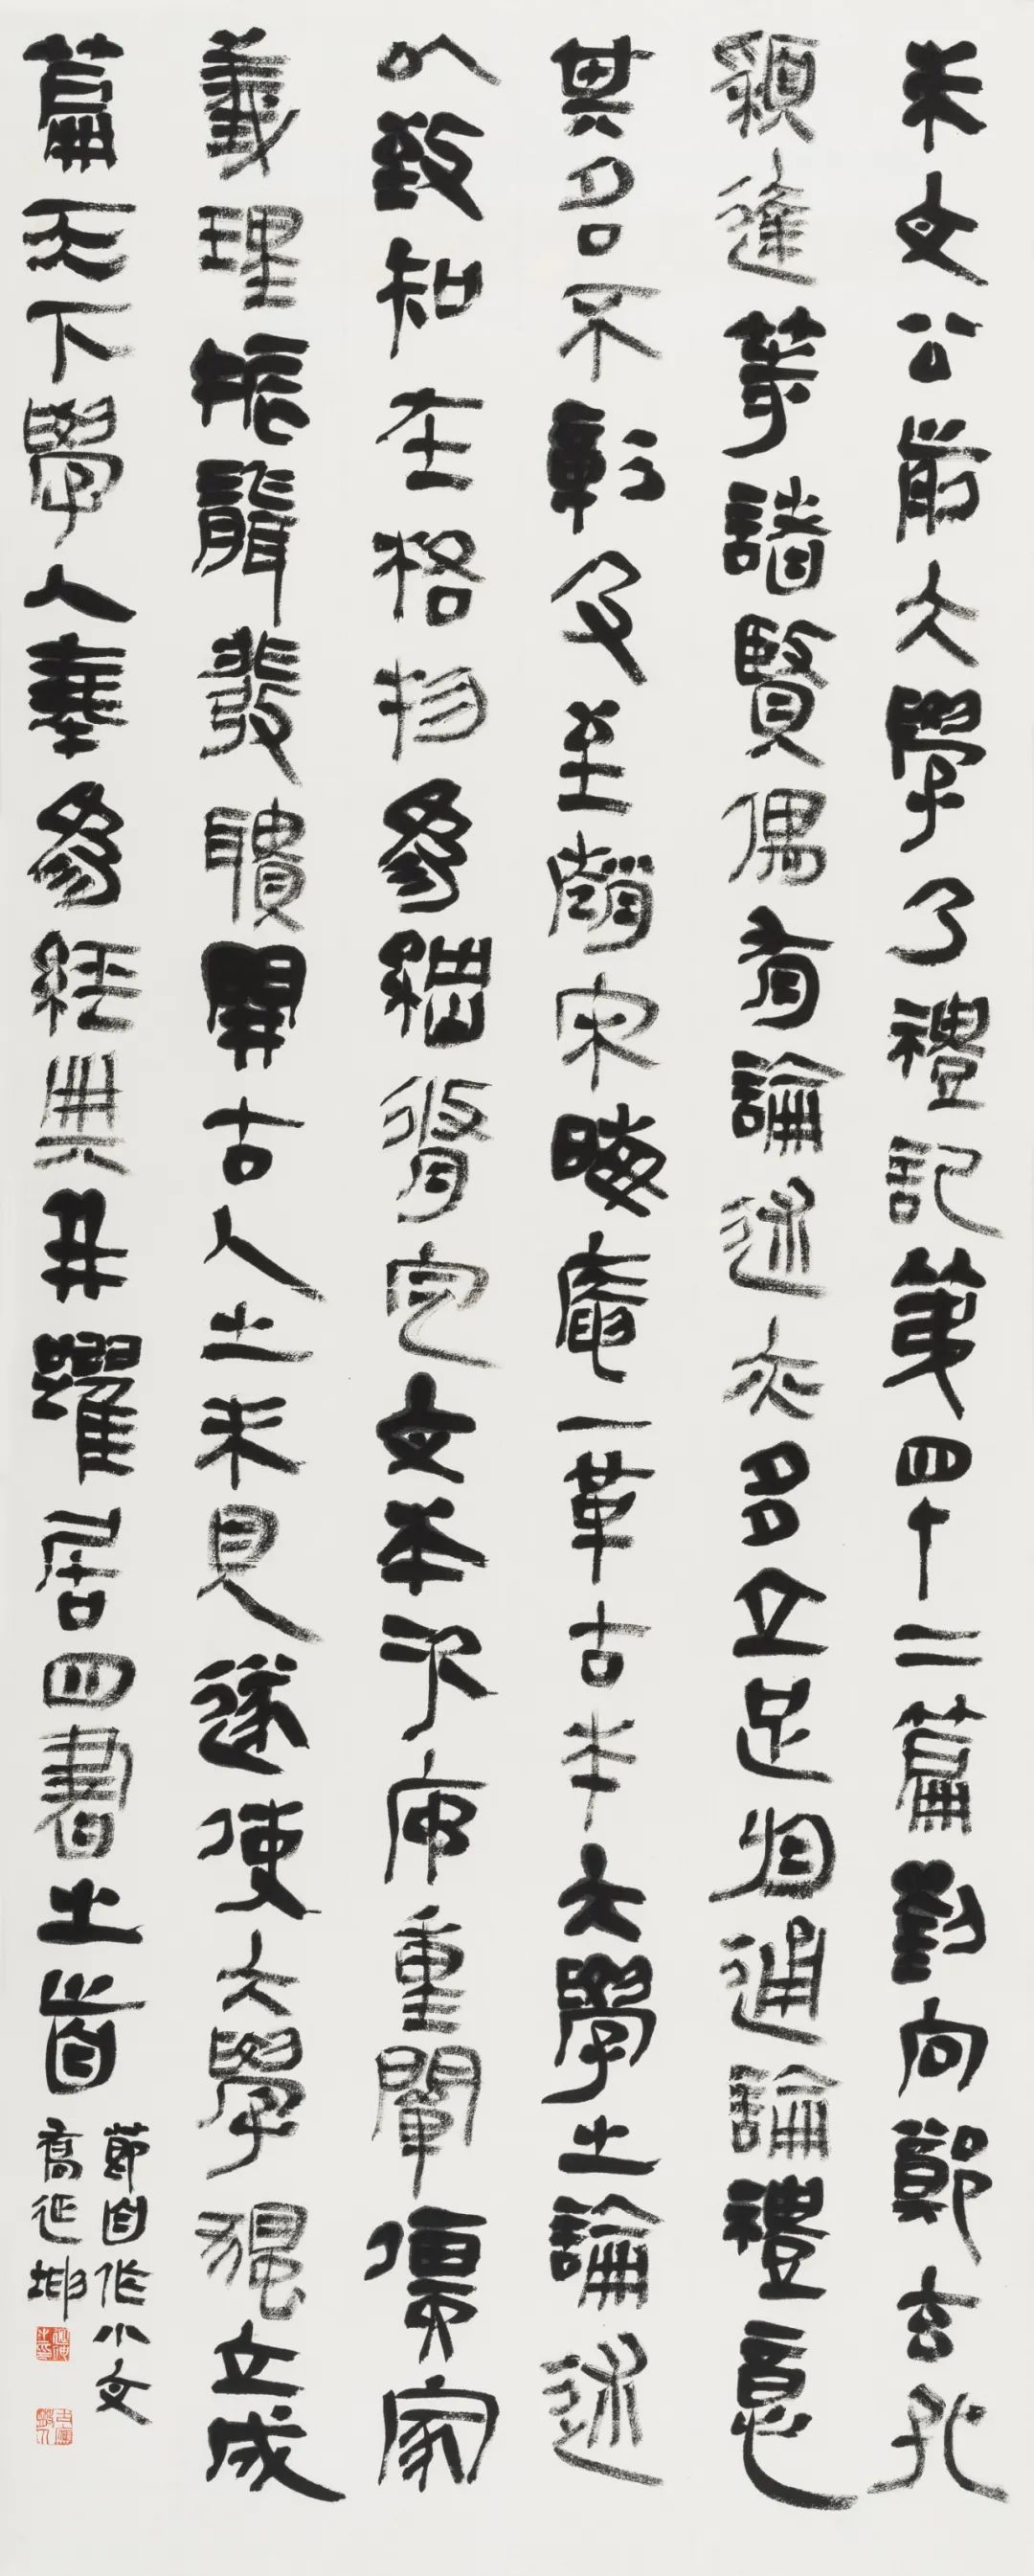 朱文公前大學乃禮記第四十二篇對向鄭玄孔
穎達等諸賢偶有論述亦多立足通論禮意
其名不彰及至宋晦庵一革古本大學之論述
以致知在格物爲綱脊定文本次序重闡儒家
義理振聾發聵開古人之未見遂使大學獨立成
篇天下學人奉爲經典并躍居四書之首
節自作小文
喬延坤